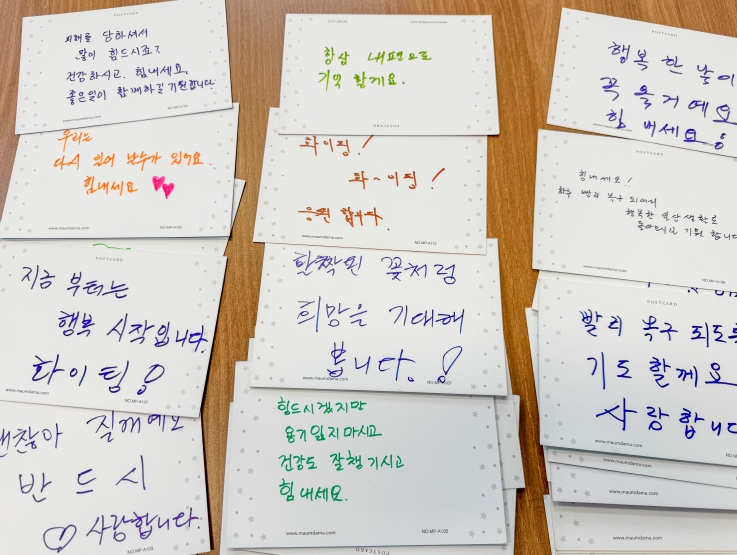 POSTCARD
피해를 당하셔서
많이 힘드시죠?
건강하시고, 힘내세요,
좋은일이 함께하길 기원합니다.
www.maumdama.com
NO.MP-A107
우리는
다시 일어 날수가 있어요.
힘내세요
www.maumdama.com
NO.MP-A105
POSTCARD
지금 부터는
행복 시작입니다.
화이팅!
www.maumdama.com
NO.MP-A107
괜찮아 질꺼예요
반드시
사랑합니다.
NO.MP-A103
항상 내편으로
기억 할게요.
POSTCARD
화이팅!
화~이팅!
응원합니다.
www.maumdama.com
활짝핀 꽃처럼
희망을 기대해
봅니다.!
www.maumdama.com
힘드시겠지만
용기잃지마시고
건강도 잘챙기시고
힘내세요.
www.maumdama.com
NO.MP-A105
POSTCARD
POSTCARD
행복한 날이
꼭 올거예요
힘내세요!
POSTCARD
힘내세요!
하루 빨리 복구 되어서
행복한 일상생활로
돌아가시길 기원 합니다
www.maumdama.com
POSTCARD
빨리 복구 되도록
기도 할께요
사랑합니다
www.maumdama.com
www.maumdama.com
www.maumdama.com